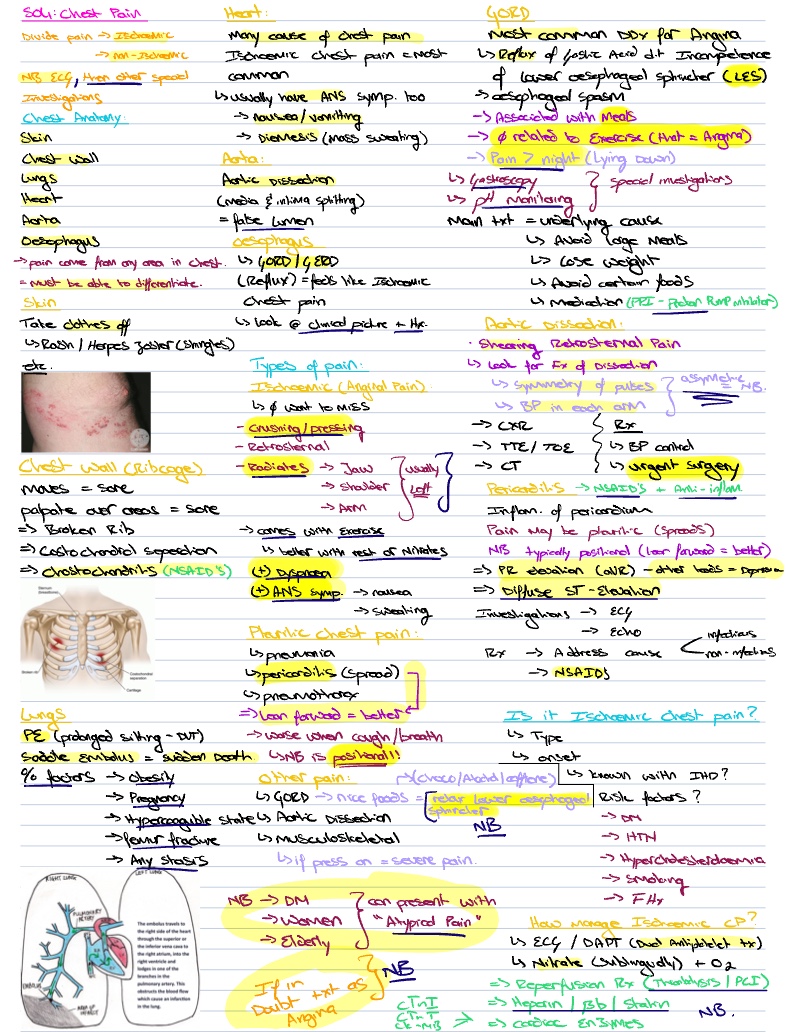 SOG: Chest Pain
Divide pain → Ischaemic
→ non-Ischaemic
NB ECG, then other special
Investigations
Chest Anatomy:
Skin
Chest wall
Lungs
Heart
Aorta
Oesophagus
→ pain come from any area in chest.
= Must be able to differentiate.
Skin
Take clothes off
↳ Rash / Herpes Zoster (shingles)
etc.
Chest Wall (Ribcage)
moves = sore
palpate over areas = sore
=> Broken Rib
=> Costochondral seperation
=> chostochondritis (NSAID'S)
Sternum
(breastbone)
Broken rib
Costochondral
separation
Cartilage
Lungs
PE (prolonged sitting - DVT)
Saddle Embolus = sudden Death.
% factors → Obesity
→ Pregnancy
→ Hypercoagulable state
→ femur fracture
→ Any stasis
RIGHT LUNG
LEFT LUNG
PULMONARY
ARTERY
EMBOLUS
AREA OF
INFARCT
The embolus travels to
the right side of the heart
through the superior or
the inferior vena cava to
the right atrium, into the
right ventricle and
lodges in one of the
branches in the
pulmonary artery. This
obstructs the blood flow
which cause an infarction
in the lung.
Heart:
Many cause of chest pain
Ischaemic chest pain = most
common
↳ usually have ANS symp. too
→ nausea/vomiting
→ Diemesis (mass sweating)
Aorta:
Aortic Dissection
(media & intima splitting)
= false lumen
oesophagus
↳ GORD / GERD
(Reflux) = feels like Ischaemic
chest pain
↳ look @ clinical picture + Hx.
Types of pain:
Ischaemic (Anginal Pain).
↳ ∅ want to miss
- Crushing/pressing
- Retrosternal
- Radiates → Jaw
→ shoulder
→ Arm
usually
Left
→ comes with Exercise
↳ better with rest or Nitrates
(+) Dyspnoea
(+) ANS symp. → nausea
→ sweating
Pleuritic chest pain:
↳ pneumonia
↳ pericarditis (spread)
↳ pneumothorax
=> Lean forward = better
→ worse when cough/breath
↳ NB is positional!!
Other pain: → (choco/Alcohol/caffeine)
↳ GORD → nice foods = relax lower oesophageal
sphincter
NB
↳ Aortic Dissection
↳ musculoskeletal
↳ if press on = severe pain.
NB → DM
→ Women
→ Elderly
can present with
"Atypical Pain"
If in
Doubt txt as
Angina
NB
GORD
Most common DDx for Angina
↳ Reflux of Gastic Acid d.t Incompetence
of lower oesophageal sphincter (LES)
→ oesophageal spasm
→ Associated with Meals
→ ∅ related to Exercise (that = Angina)
→ Pain > night (Lying Down)
↳ Gastroscopy
↳ pH monitoring
special investigations
Main txt = underlying cause
↳ Avoid large meals
↳ Lose weight
↳ Avoid certain foods
↳ Medication (PPI - Proton Pump Inhibitor)
Aortic Dissection:
· Shearing Retrosternal Pain
↳ Look for Fx of Dissection
↳ symmetry of pulses
↳ BP in each arm
asymetric
= NB.
→ CXR
→ TTE / TOE
→ CT
Rx
↳ BP control
↳ urgent surgery
Pericarditis → NSAID'S + Anti-inflam.
Inflam. of pericardium
Pain may be pleuritic (spreads)
NB typically positional (lean forward = better)
=> PR elevation (aVR) - other leads = Depression
=> Diffuse ST-Elevation
Investigations → ECG
→ Echo
Rx → Address cause
infectious
non-infectious
→ NSAIDS
Is it Ischaemic chest pain?
↳ Type
↳ onset
↳ known with IHD?
Risk factors?
→ DM
→ HTN
→ Hypercholesterolaemia
→ Smoking
→ FHx
How manage Ischaemic CP?
↳ ECG / DAPT (Dual Antiplatelet tx)
↳ Nitrate (Sublingually) + O2
=> Reperfusion Rx (Thrombolysis / PCI)
=> Heparin / Bb / Statin
NB.
=> cardiac ENZYMES
cTnI
cTn T
CK-MB